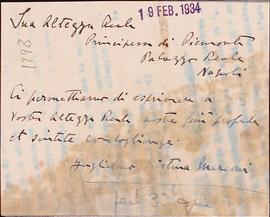 19 FEB. 1934
Sua Altezza Reale
Principessa di Piemonte
Palazzo Reale
Napoli
1298
Ci permettiamo di esprimere a
Vostra Altezza Reale nostre più profonde
et sentite condoglianze
Guglielmo Cristina Marconi
copia